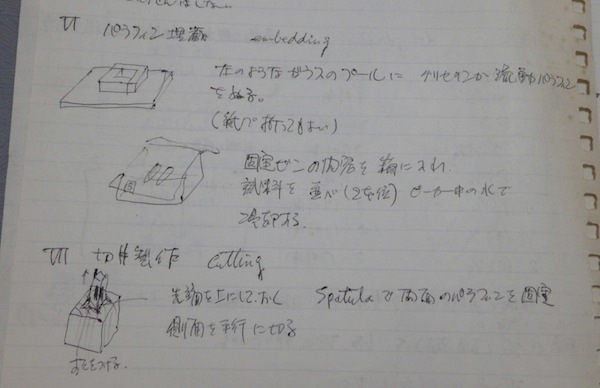 VI パラフィン埋蔵 embedding
左のようなガラスのプールに グリセリンか流動パラフィン
をぬる。
(紙で折ってもよい)
固定ビンの内容を箱に入れ
試料を並べ(2本位)ビーカー中の水で
冷却する。
VII 切片製作 Cutting
先端を上にしておく Spatulaで両面のパラフィンを固定
側面を平行に切る